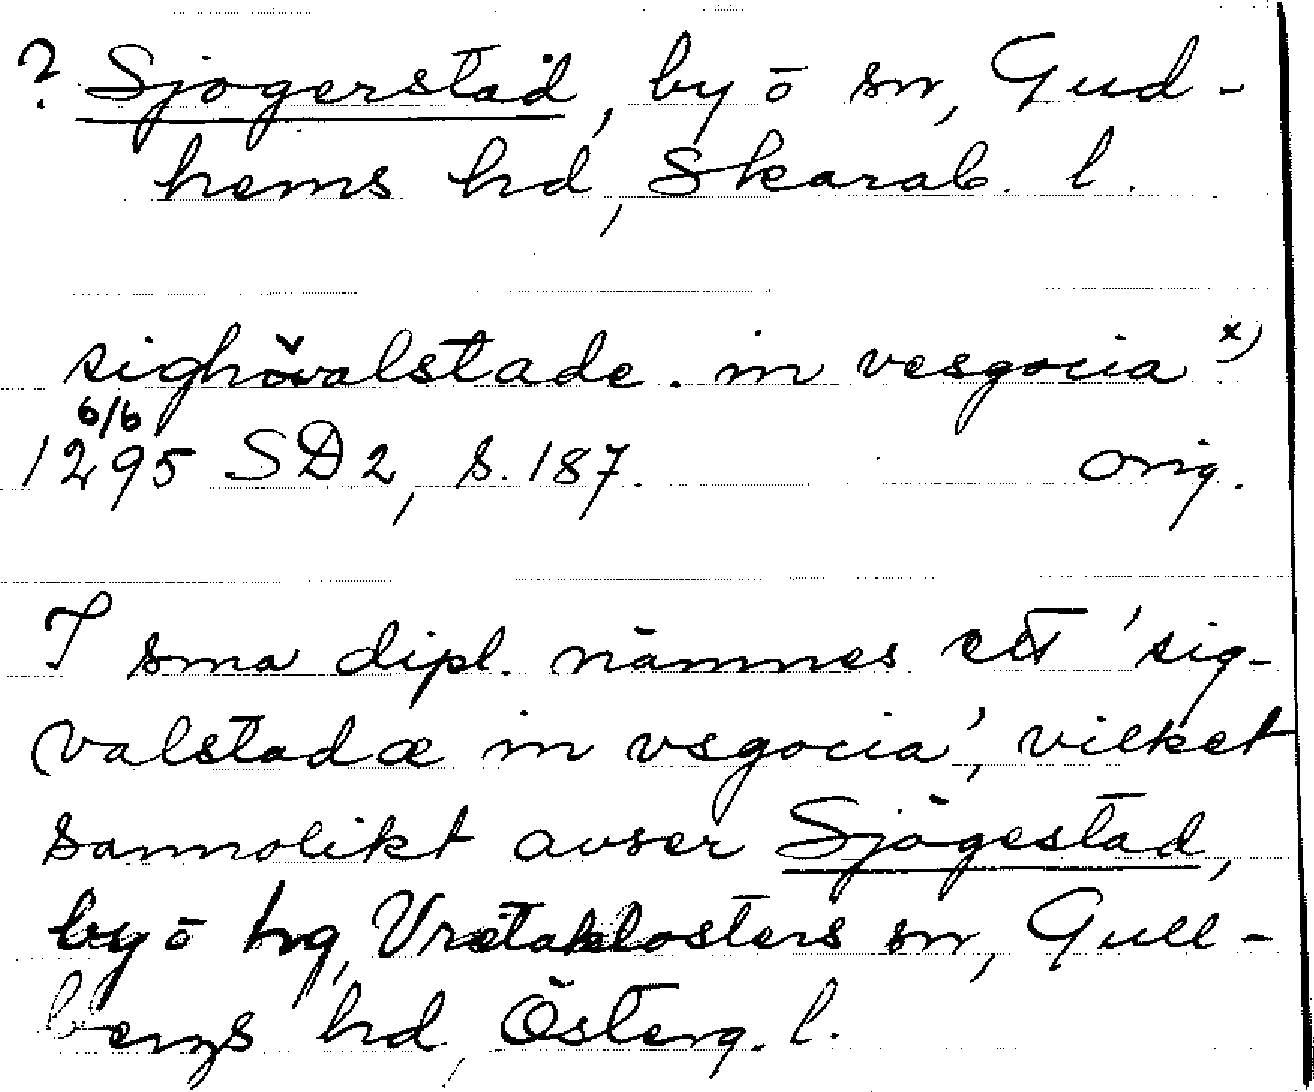 ? Sjögerstad, by ō sn, Gud-
hems hd, Skarab. l.
sighövalstade. in vesgocia x)
6/6
1295 SD 2, s. 187. orig.
I sma dipl. nämnes ett 'sig-
valstadæ in vsgocia', vilket
sannolikt avser Sjögestad,
by ō hg, Vretaklosters sn, Gull-
bergs hd, Österg. l.